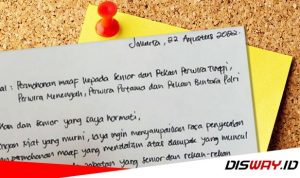 Jakarta, 22 Agustus 2022
al : Permohonan maaf kepada senior dan Rekan Perwira Tinggi,
Perwira Menengah, Perwira Pertama dan Rekan Bintara Polri
kan dan senior yang saya hormati,
ngan niat yang murni, saya ingin menyampaikan rasa penyesalan
permohonan maaf yang mendalam atas dampak yang muncul
jabatan yang senior dan rekan-rekan
DISWAY.ID